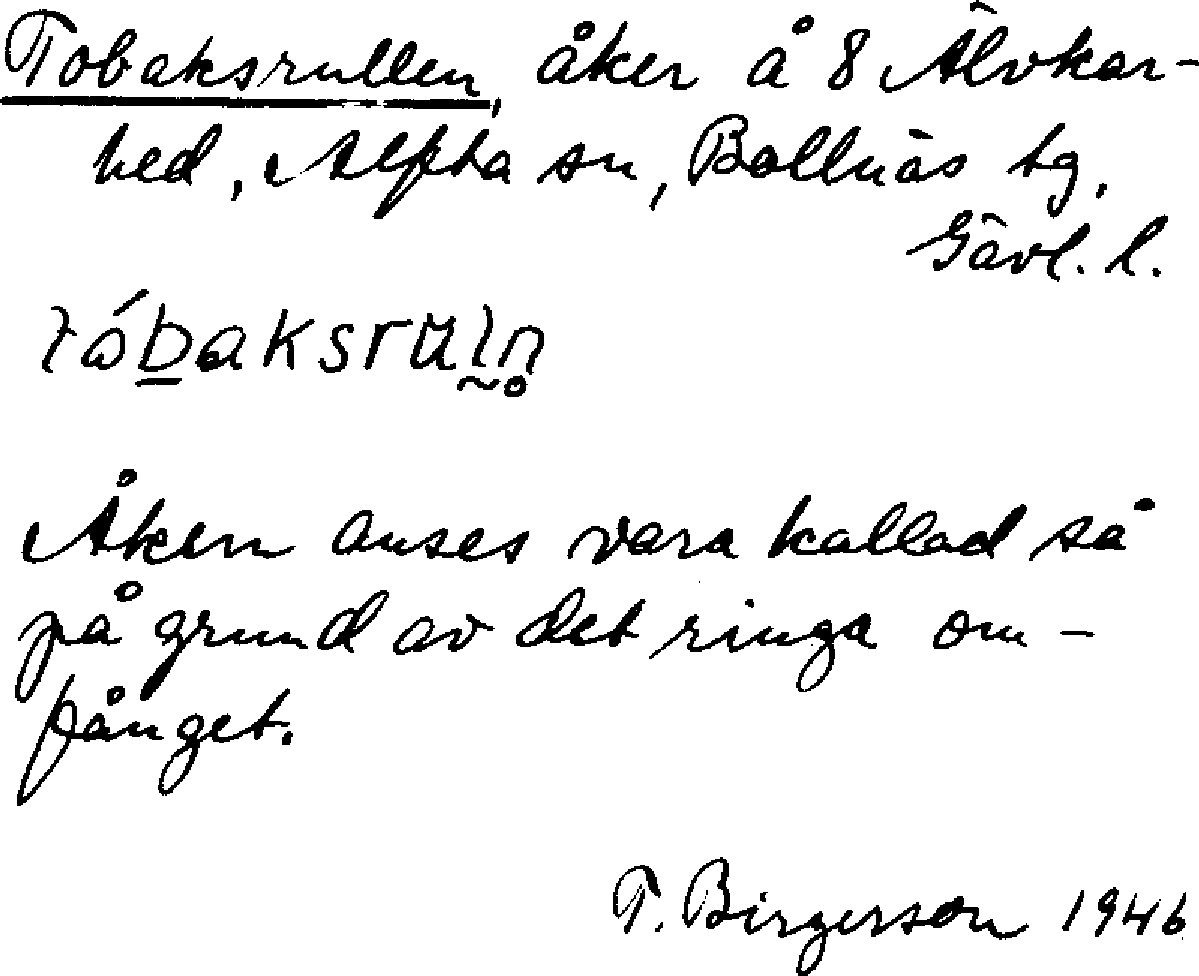 Tobaksrullen, åker å 8 Älvkar-
hed, Alfta sn, Bollnäs tg,
Gävl. l.
tóbaksrʉln̥
Åkern anses vara kallad så
på grund av det ringa om-
fånget.
T. Birgerson 1946